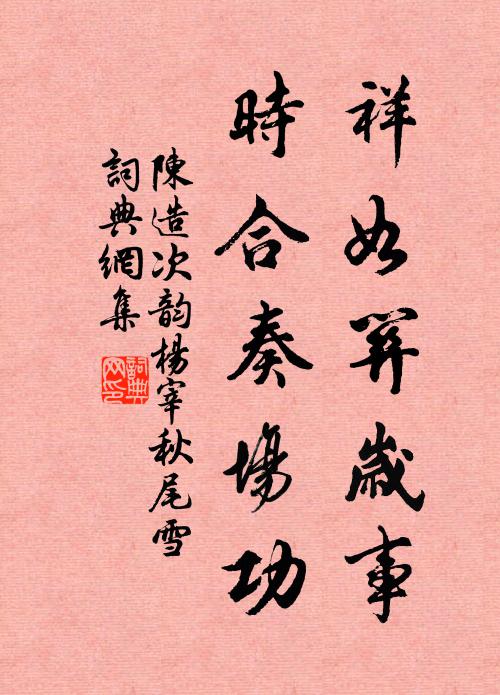 祥如開歲事
時合奏場功
陳造次韵楊宰秋尾雪
詞典網集
詞典
网印